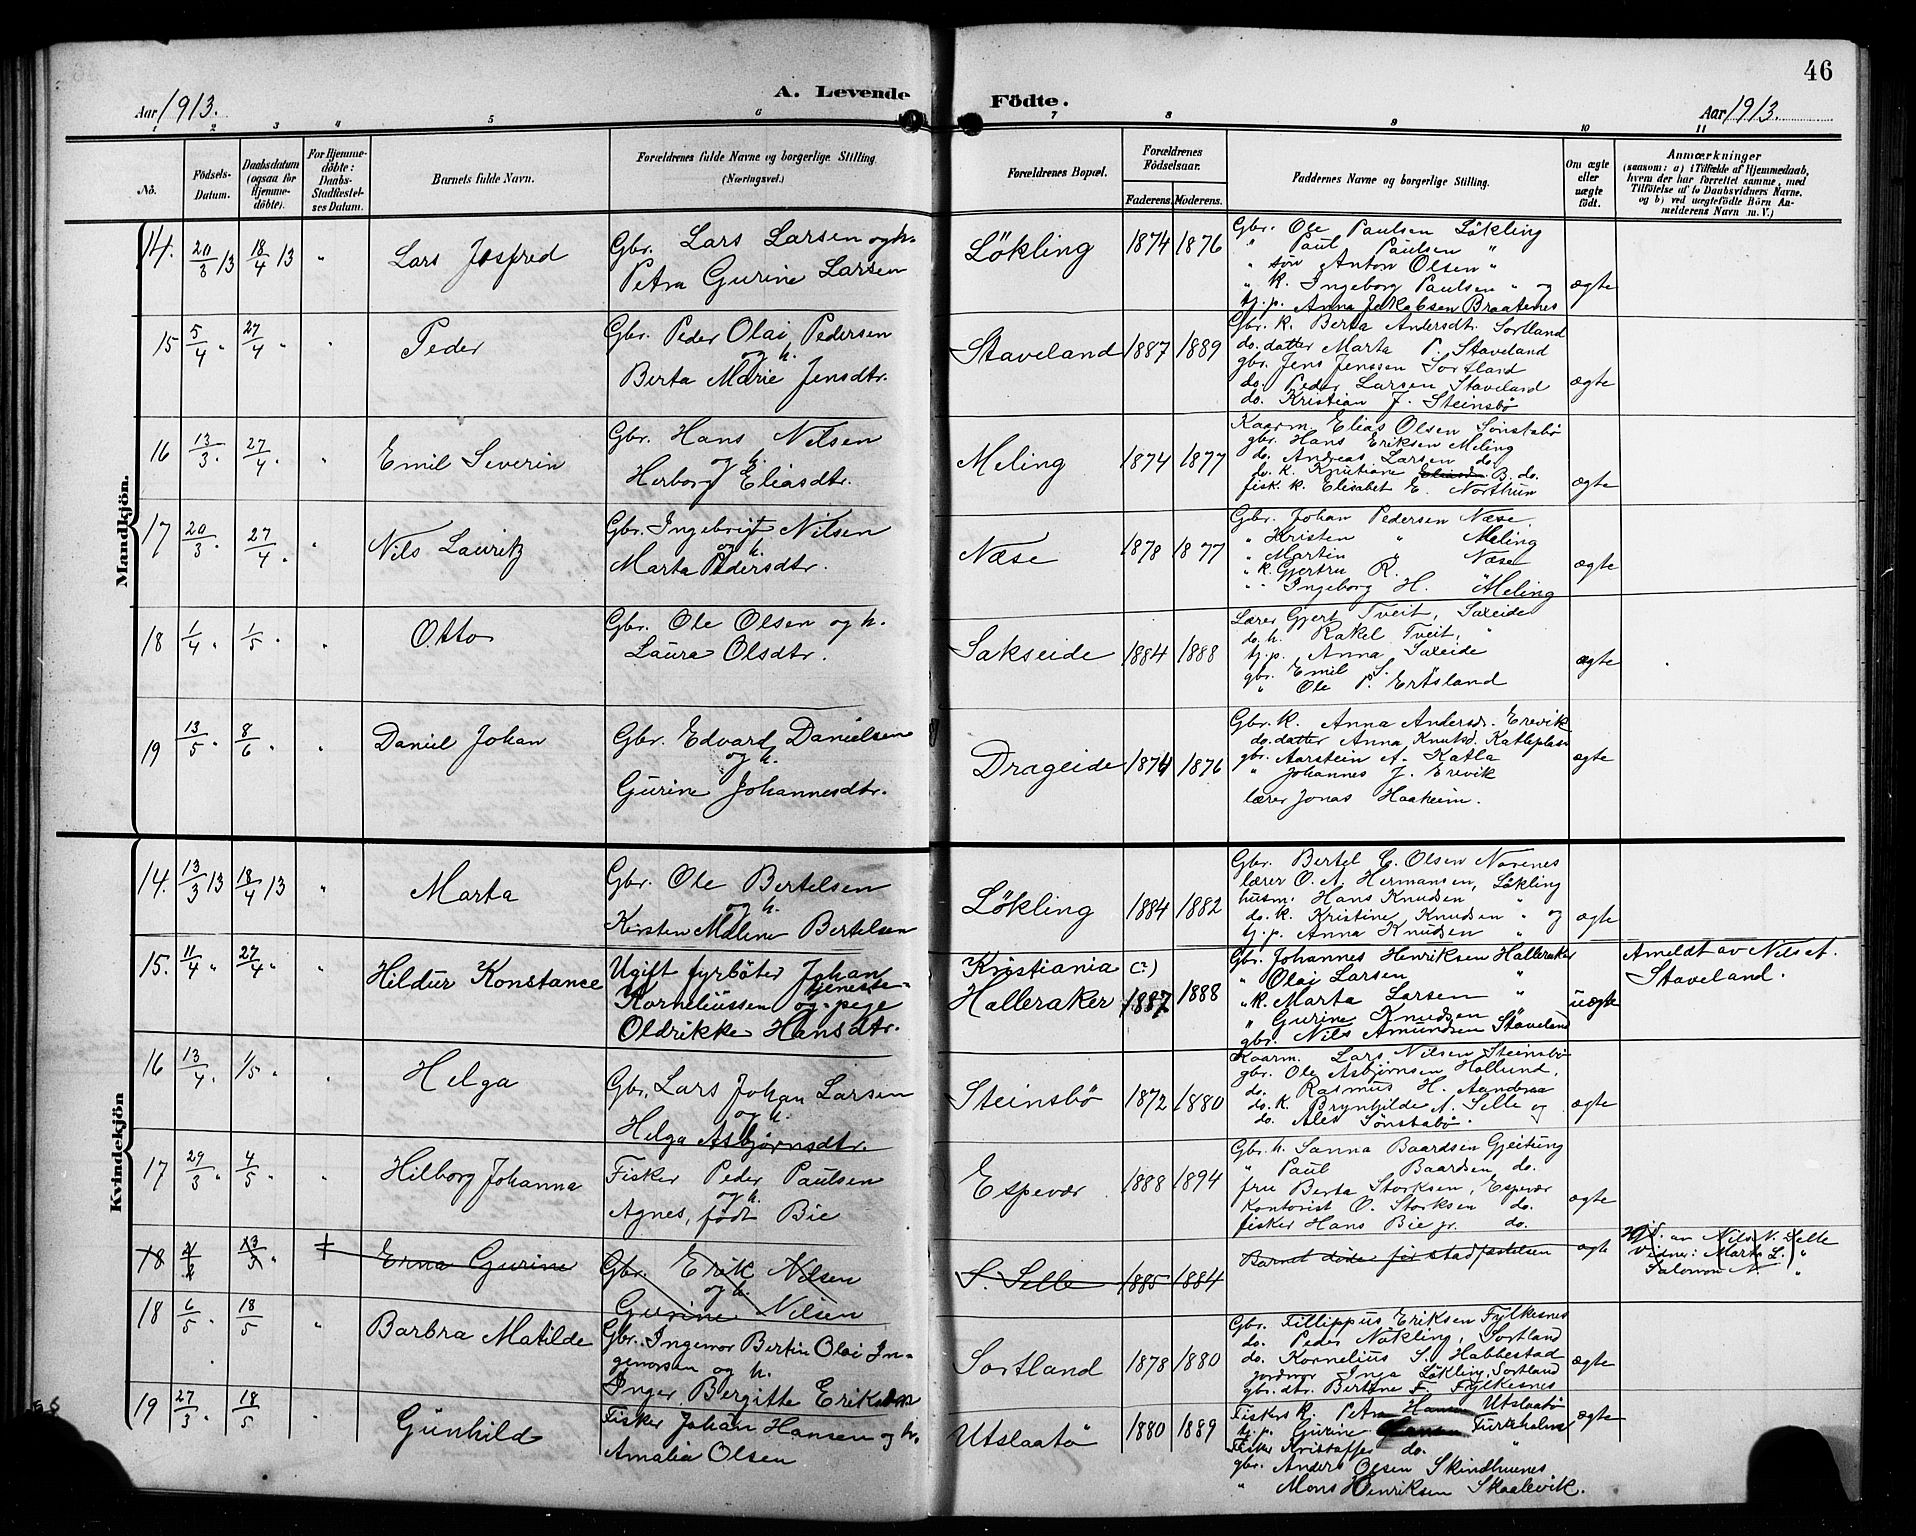 46
Aar 1913.
A. Levende Födte.
Aar 1913.
1 2 3 4 5 6 7 8 9 10 11
No.
Födsels-Datum.
Daabsdatum (ogsaa for Hjemme-döbte).
For Hjemme-döbte: Daabs-Stadfæstel-ses Datum.
Barnets fulde Navn.
Forældrenes fulde Navne og borgerlige Stilling. (Næringsvei.)
Forældrenes Bopæl.
Forældrenes Födselsaar.
Faderens. Moderens.
Faddernes Navne og borgerlige Stilling.
Om ægte eller uægte födt.
Anmærkninger
(saasom: a) i Tilfælde af Hjemmedaab, hvem der har forrettet samme, med Tilföielse af to Daabsvidners Navne. og b) ved uegtefödte Börn An-melderens Navn m. V.)
Mandkjön.
14. 20/3 13 18/4 13 " Lars Josfred
Gbr. Lars Larsen og h.
Petra Gurine Larsen
Lökling 1874 1876
Gbr. Ole Paulsen Lökling
" Paul Paulsen "
" søn Anton Olsen "
" k. Ingeborg Paulsen " og
tj.p. Anna Jakobsen Braatenes
ægte
15 5/4 " 27/4 " " Peder
Gbr. Peder Olai Pedersen
og h.
Berta Marie Jensdtr.
Staveland 1887 1889
Gbr. k. Berta Andersdt. Sortland
do. datter Marta P. Staveland
gbr. Jens Jenssen Sortland
do. Peder Larsen Staveland
do. Kristian J. Steinsbö
ægte
16 13/3 " 27/4 " " Emil Severin
Gbr. Hans Nilsen
og h.
Herborg Eliasdtr.
Meling 1874 1877
Kaarm. Elias Olsen Sønstabø
gbr. Hans Eriksen Meling
do. Andreas Larsen do.
do. k. Kristiane B. do.
fisk. k. Elisabet E. Northun
ægte
17 20/3 " 27/4 " " Nils Lauritz
Gbr. Ingebrigt Nilsen
og h.
Marta Pedersdtr.
Næse 1878 1877
Gbr. Johan Pedersen Næse.
" Kristen " Meling
" Martin " Næse
" k. Gjertru R. "
" " Ingeborg H. Meling
ægte
18 1/4 " 1/5 " " Otto
Gbr. Ole Olsen og h.
Laura Olsdtr.
Sakseide 1884 1888
Lærer Gjert Tveit, Saxeide
do. h. Rakel Tveit, "
tj.p. Anna Saxeide
gbr. Emil S.
" Ole P. Ertsland
ægte
19 13/5 " 8/6 " " Daniel Johan
Gbr. Edvard Danielsen
og h.
Gurine Johannesdtr.
Drageide 1874 1876
Gbr. k. Anna Andersdr. Erevik
do. datter Anna Knutsd. Katleplass
gbr. Aarstein A. Katla
" Johannes J. Erevik
lærer Jonas Haaheim.
ægte
Kvindekjön
14. 13/3 13 18/4 13 " Marta
Gbr. Ole Bertelsen
og h.
Kirsten Maline Bertelsen
Lökling 1884 1882
Gbr. Bertel C. Olsen Norenes
lærer O. A. Hermansen, Lökling
husm. Hans Knudsen "
do. k. Kristine Knudsen " og
tj.p. Anna Knudsen "
ægte
15. 11/4 " 27/4 " " Hildur Konstance
Ugift fyrböter Johan
Korneliussen og tjeneste-pige
Oldrikke Hansdtr.
Kristiania
Halleraker 1887 1888
Gbr. Johannes Henriksen Halleraker
" Olai Larsen "
" k. Marta Larsen "
" Gurine Knudsen "
gbr. Nils Amundsen Staveland
uægte
Ameldt av Nils A. Staveland.
16 13/4 " 1/5 " " Helga
Gbr. Lars Johan Larsen
og h.
Helga Asbjørnsdtr.
Steinsbö 1872 1880
Kaarm. Lars Nilsen Steinsbö
gbr. Ole Asbjørnsen Hollund,
do. Rasmus H. Aandraa
do. k. Brynhilde N. Selle og
do. Alet Sønstabø.
ægte
17 29/3 " 4/5 " " Hilborg Johanna
Fisker Peder Paulsen
og h.
Agnes, född Bie
Espevær 1888 1894
Gbr. h. Sanna Baardsen Gjeitung
" Paul Baardsen do.
fru Berta Storksen, Espevær
Kontorist O. Storksen do.
fisker Hans Bie jr. do.
ægte
18 21/2 13/3 " ‡ Erna Gurine
Gbr. Erik Nilsen
og h.
Gurine Nilsen
S. Selle 1885 1884
Barnet døde før stadfæstelsen
ægte
av Nils N. Selle
Vidner: Marta L. "
Salomon N. "
18 6/5 " 18/5 " Barbra Matilde
Gbr. Ingemor Bertin Olai In-
gemorsen og h.
Inger Bergitte Eriksen
Sortland 1878 1880
Gbr. Fillippus Eriksen Fylkesnes
do. Peder Nökling, Sortland
do. Kornelius S. Habbestad
jordmor Inga Lökling, Sortland
gbr. dtr. Bertine F. Fylkesnes
ægte
19 27/3 " 18/5 " Gunhild
Fisker Johan Hansen og h.
Amalia Olsen
Utslaatö 1880 1889
Fiskers k. Petra Hansen Utslaatö
tj.p. Gurine Turkholme
Fisker Kristoffer do. "
gbr. Anders Olsen Skindhuenes
" Mons Henriksen Skaalevik.
ægte